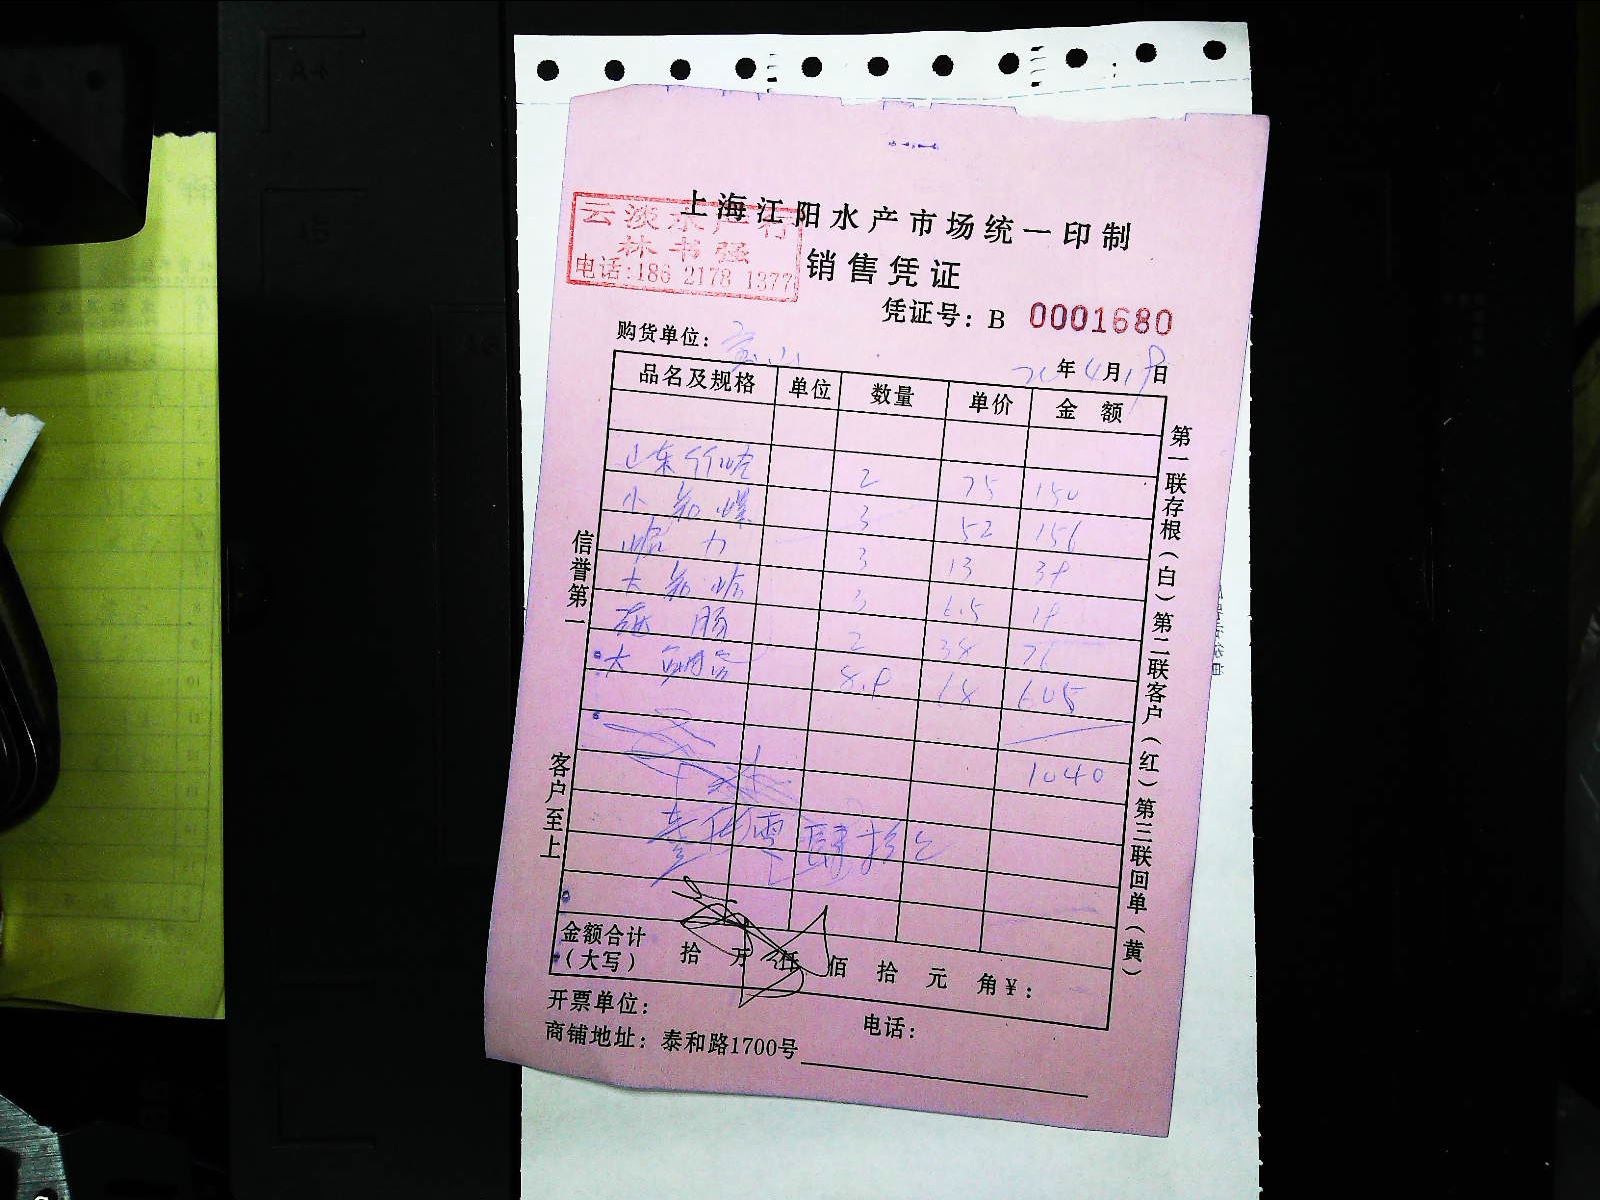 上海江阳水产市场统一印制
云淡水产行
林书强
电话:186 2178 1377
销售凭证
凭证号: B 0001680
购货单位:
年 4月19日
品名及规格 单位 数量 单价 金额
山东 2 75 150
小 3 52 156
3 13 39
大 3 6.5 19
2 38 76
大 8.9 68 605
1040
壹仟零肆拾元
金额合计
(大写) 拾 万 仟 佰 拾 元 角¥:
开票单位: 电话:
商铺地址: 泰和路1700号
信誉第一
客户至上
第一联存根(白)第二联客户(红)第三联回单(黄)